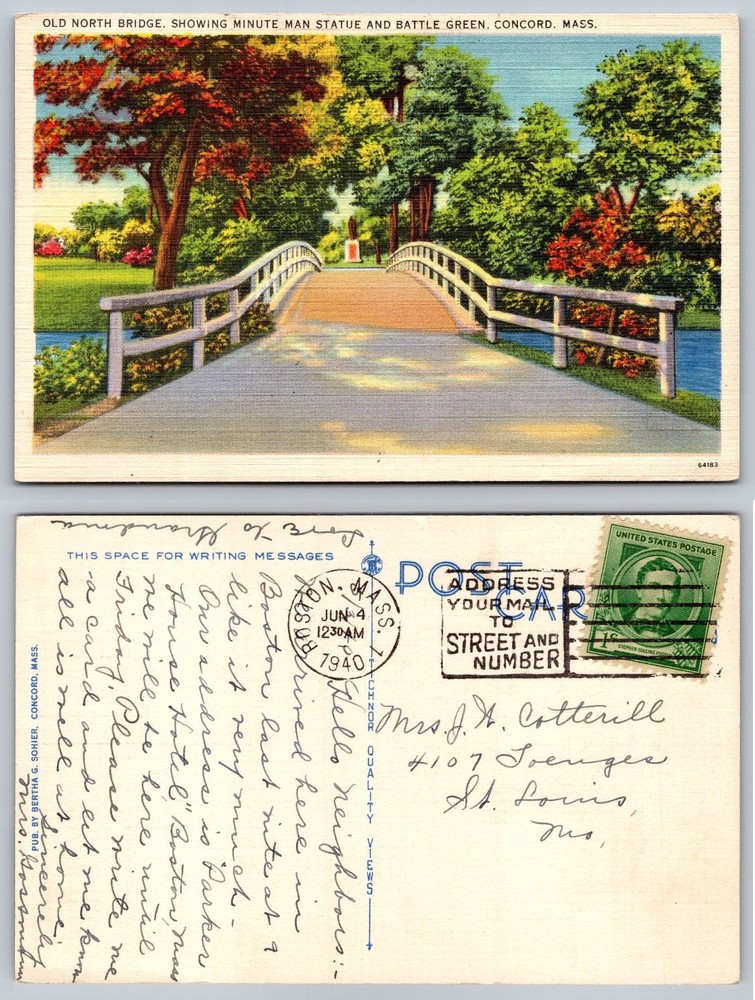 OLD NORTH BRIDGE, SHOWING MINUTE MAN STATUE AND BATTLE GREEN, CONCORD, MASS.
64183
Love to Grandma
THIS SPACE FOR WRITING MESSAGES
Hello Neighbors:-
Arrived here in
Boston last nite at 9
like it very much-
Our address is "Parker
House Hotel," Boston, Mass
We will be here until
Friday, Please write me
a card and let me know
all is well at home.
Sincerely
Mrs.
PUB. BY BERTHA G. SOHIER, CONCORD, MASS.
TICHNOR QUALITY VIEWS
POST CARD
BOSTON, MASS. 1
JUN 4
12 30 AM
1940
ADDRESS
YOUR MAIL
TO
STREET AND
NUMBER
UNITED STATES POSTAGE
1¢
STEPHEN COLLINS FOSTER
Mrs. J. H. Cotterill
4107
St. Louis,
Mo,